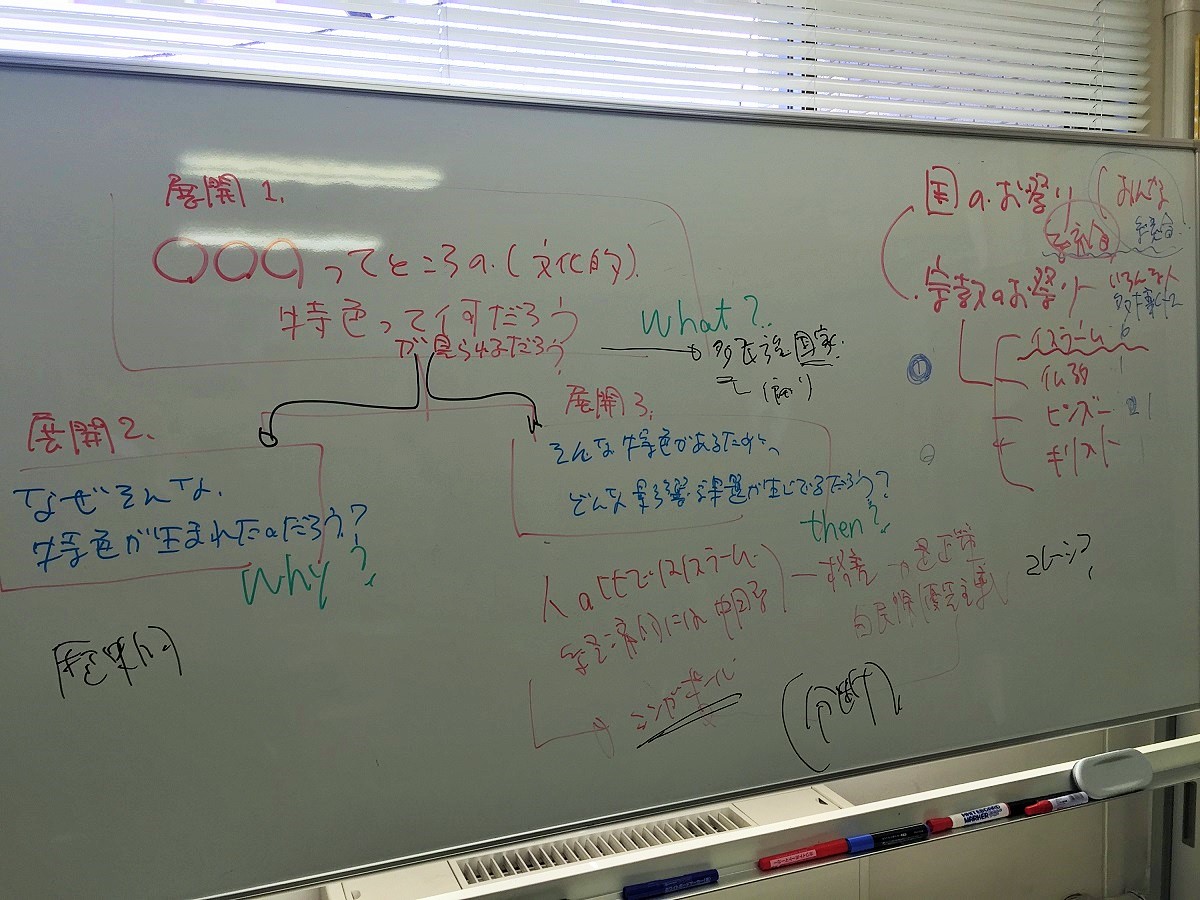 展開1.
〇〇〇ってところの.(文化的).
特色って何だろう
が見られるだろう?
What?
多民族国家.
展開2.
なぜそんな.
特色が生まれたのだろう?
Why?
展開3.
そんな特色があるために、
どんな影響・課題が生じてるだろう?
then?
人口比ではイスラーム
経済的には中国系
格差
是正策
白民族優先主義
マレーシア?
シンガポール
(分断)
歴史的
国のお祭り
みんな
宗教のお祭り
いろんな人
多様性
イスラーム 6
仏教 1
ヒンズー 1
キリスト
①